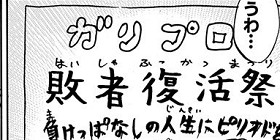 うわ…
ガリプロ
はいしゃふっかつまつり
敗者復活祭
負けっぱなしの人生にピリオド